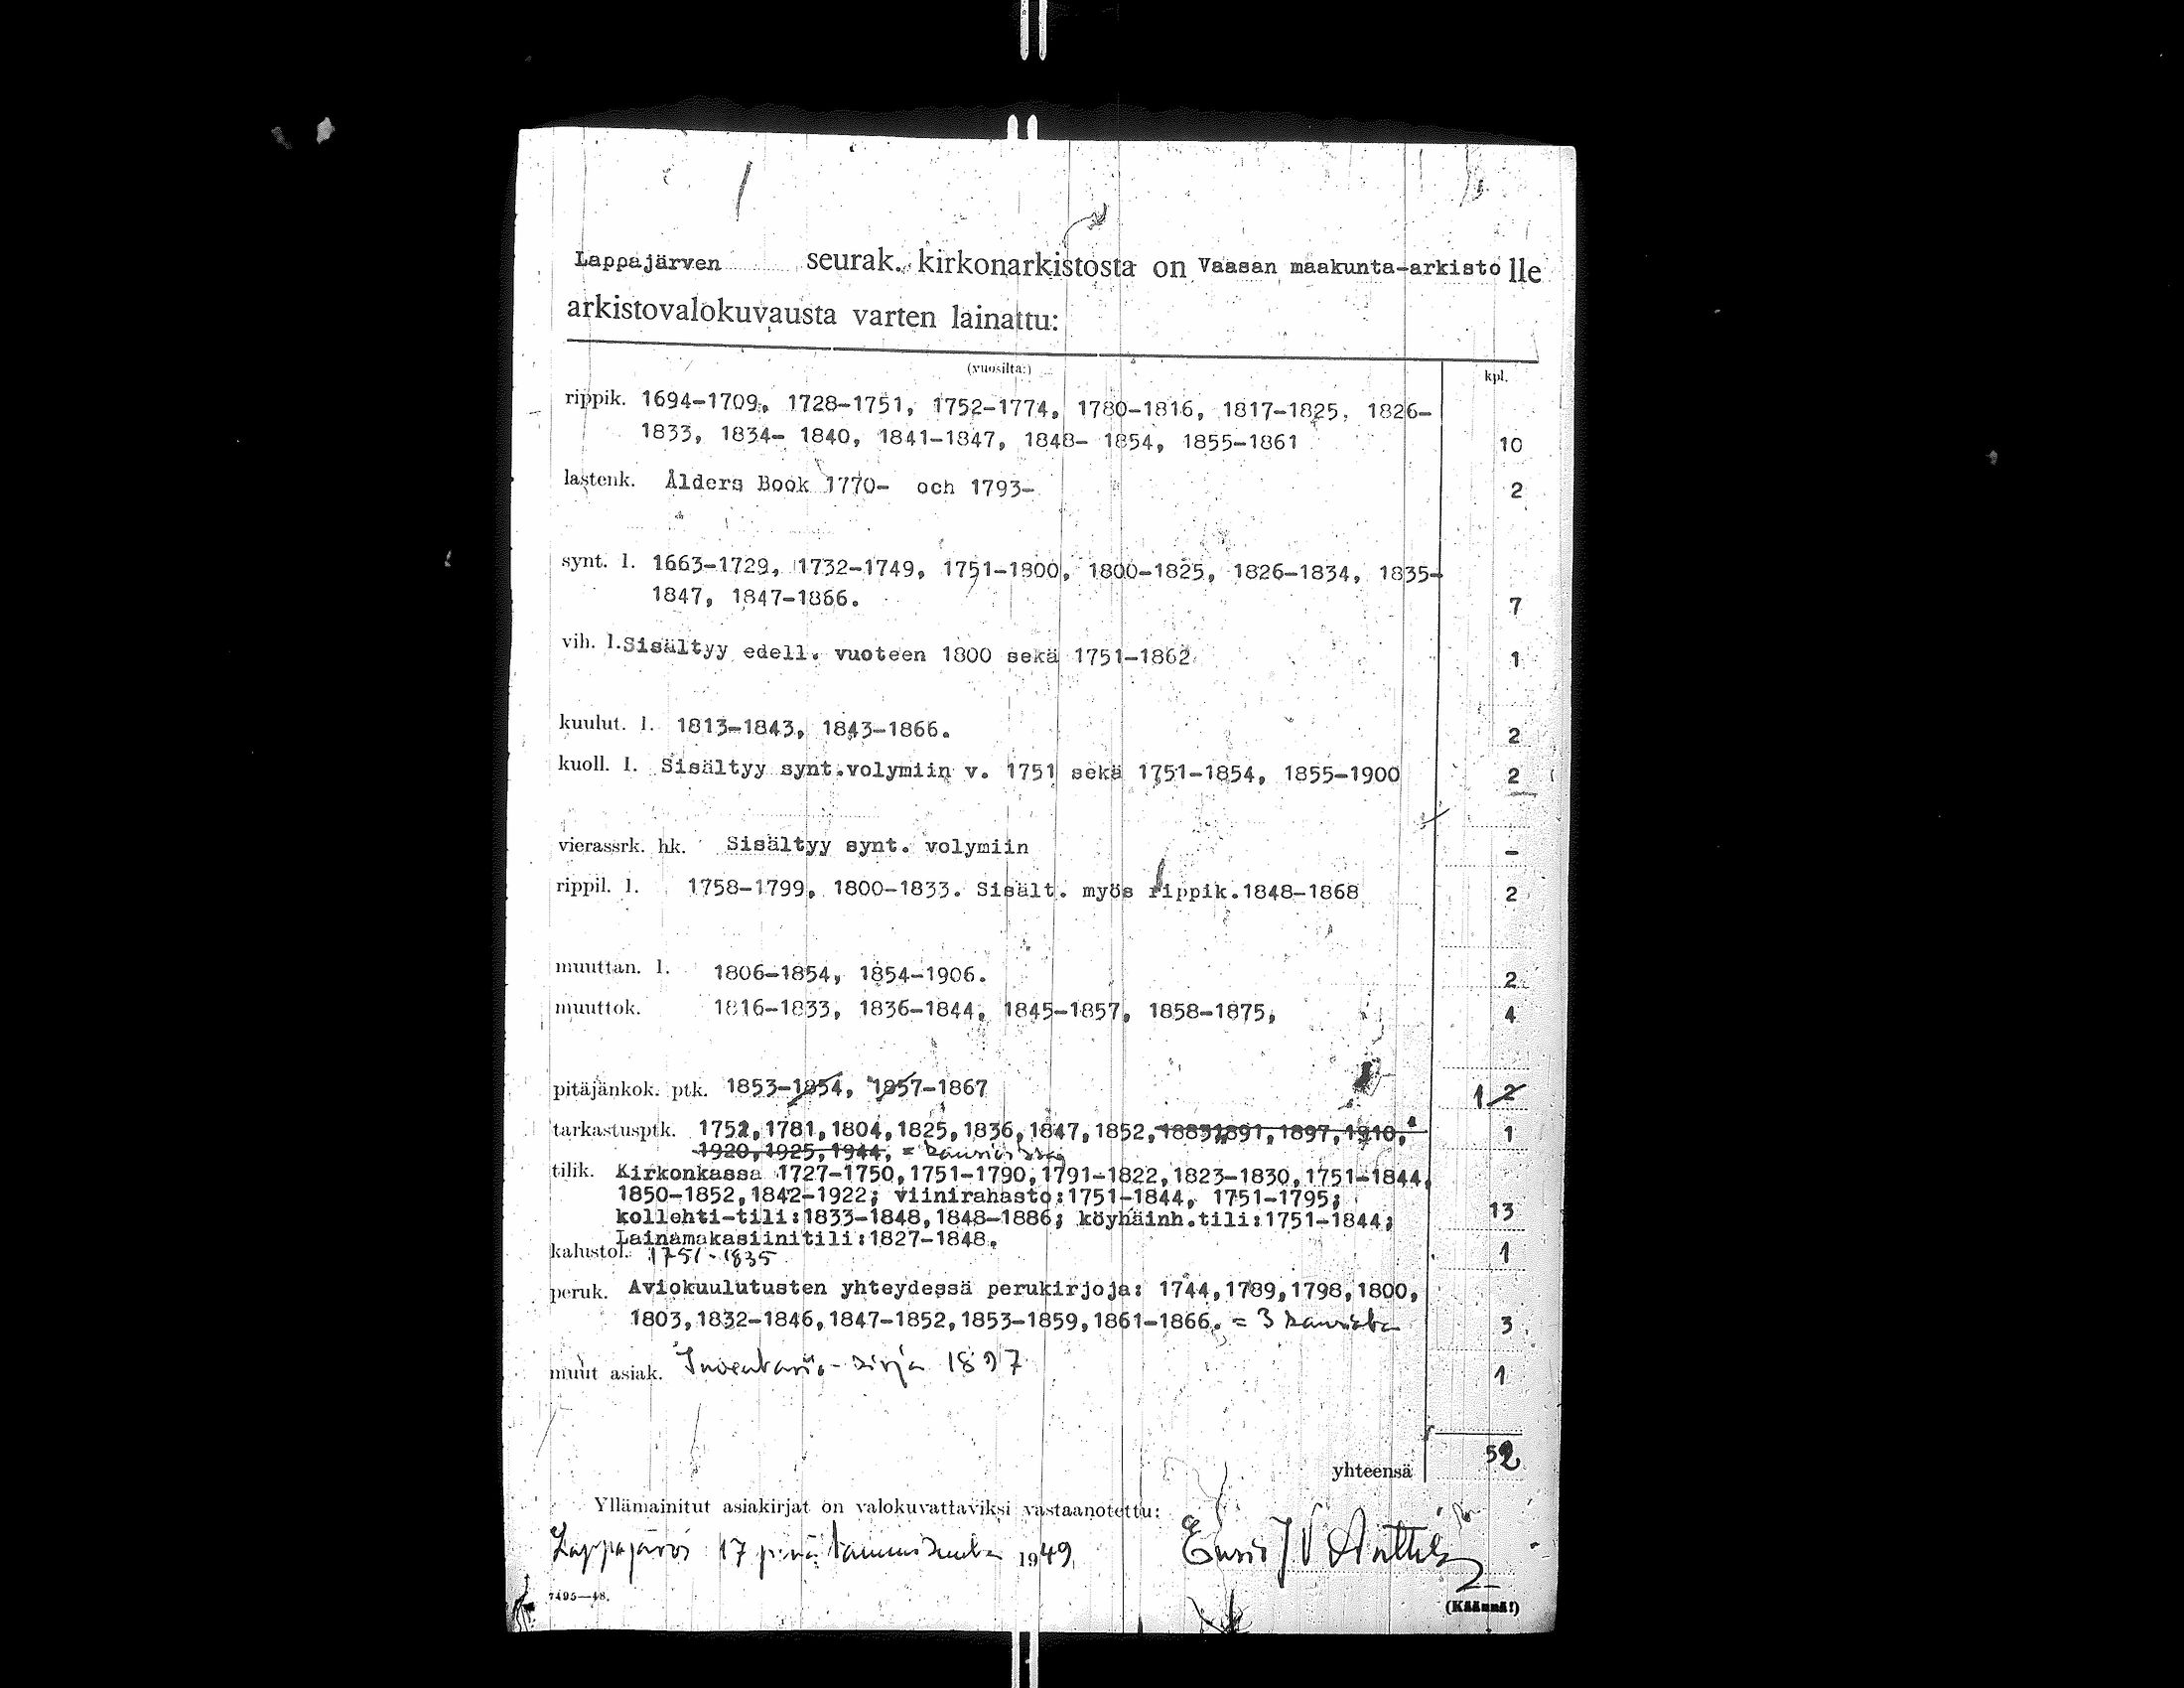 Lappajärven seurak. kirkonarkistosta on Vaasan maakunta-arkisto lle
arkistovalokuvausta varten lainattu:
(vuosilta:) kpl.
rippik. 1694-1709, 1728-1751, 1752-1774, 1780-1816, 1817-1825, 1826-
1833, 1834- 1840, 1841-1847, 1848- 1854, 1855-1861 10
lastenk. Ålders Book 1770- och 1793- 2
synt. l. 1663-1729, 1732-1749, 1751-1800, 1800-1825, 1826-1834, 1835-
1847, 1847-1866. 7
vih. l. Sisältyy edell. vuoteen 1800 sekä 1751-1862 1
kuulut. l. 1813-1843, 1843-1866. 2
kuoll. l. Sisältyy synt.volymiin v. 1751 sekä 1751-1854, 1855-1900 2
vierassrk. hk. Sisältyy synt. volymiin -
rippil. l. 1758-1799, 1800-1833. Sisält. myös rippik.1848-1868 2
muuttan. l. 1806-1854, 1854-1906. 2
muuttok. 1816-1833, 1836-1844, 1845-1857, 1858-1875, 4
pitäjänkok. ptk. 1853-1854, 1857-1867 1 2
tarkastusptk. 1752,1781,1804,1825,1836,1847,1852,1883,1891,1897,1910, 1
1920,1925,1944. =
tilik. Kirkonkassa 1727-1750,1751-1790,1791-1822,1823-1830,1751-1844,
1850-1852,1842-1922; viinirahasto:1751-1844, 1751-1795;
kollehti-tili:1833-1848,1848-1886; köyhäinh.tili:1751-1844; 13
Lainamakasiinitili:1827-1848.
kalustol. 1751-1835 1
peruk. Aviokuulutusten yhteydessä perukirjoja: 1744,1789,1798,1800,
1803,1832-1846,1847-1852,1853-1859,1861-1866. = 3 kansiota 3
muut asiak. Inventario-kirja 1897 1
yhteensä 52
Yllämainitut asiakirjat on valokuvattaviksi vastaanotettu:
Lappajärvi 17 pnä tammikuuta 1949
7495—48.
(Käännä!)